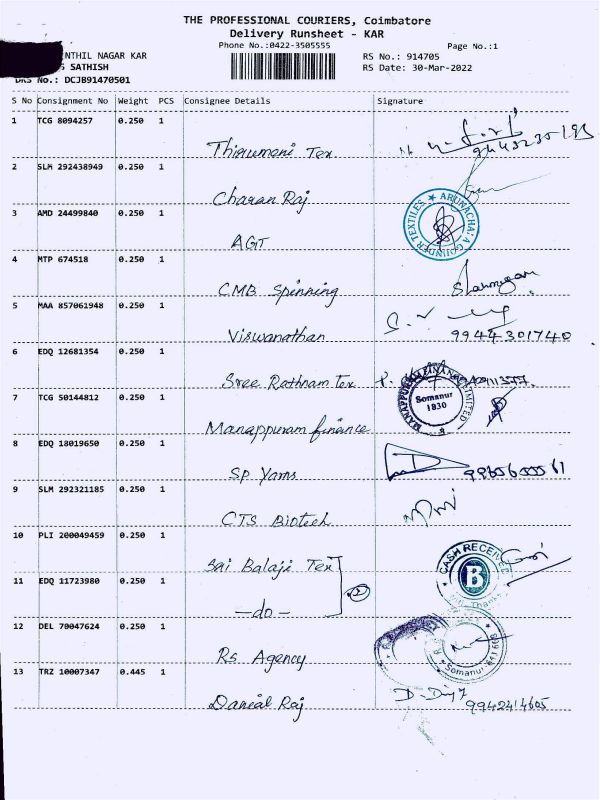 THE PROFESSIONAL COURIERS, Coimbatore
Delivery Runsheet - KAR
Phone No.:0422-3505555
Page No.:1
NTHIL NAGAR KAR
RS No.: 914705
SATHISH
RS Date: 30-Mar-2022
DRS No.: DCJB91470501
S No Consignment No Weight PCS Consignee Details Signature
1 TCG 8094257 0.250 1 Thirumani Tex
2 SLM 292438949 0.250 1 Charan Raj
3 AMD 24499840 0.250 1 AGT
ARUNACHALA GOUNDER TEXTILES
4 MTP 674518 0.250 1 CMB Spinning
5 MAA 857061948 0.250 1 Viswanathan 9944301740
6 EDQ 12681354 0.250 1 Sree Rathnam Tex
7 TCG 50144812 0.250 1 Manappuram finance
Somanur
1830
8 EDQ 18019650 0.250 1 SP Yarns
9 SLM 292321185 0.250 1 CTS Biotech
10 PLI 200049459 0.250 1 Sai Balaji Tex
CASH RECEIVED
B
11 EDQ 11723980 0.250 1 -do- 2
12 DEL 70047624 0.250 1 Rs Agency
Somanur
13 TRZ 10007347 0.445 1 Danial Raj 9942414605